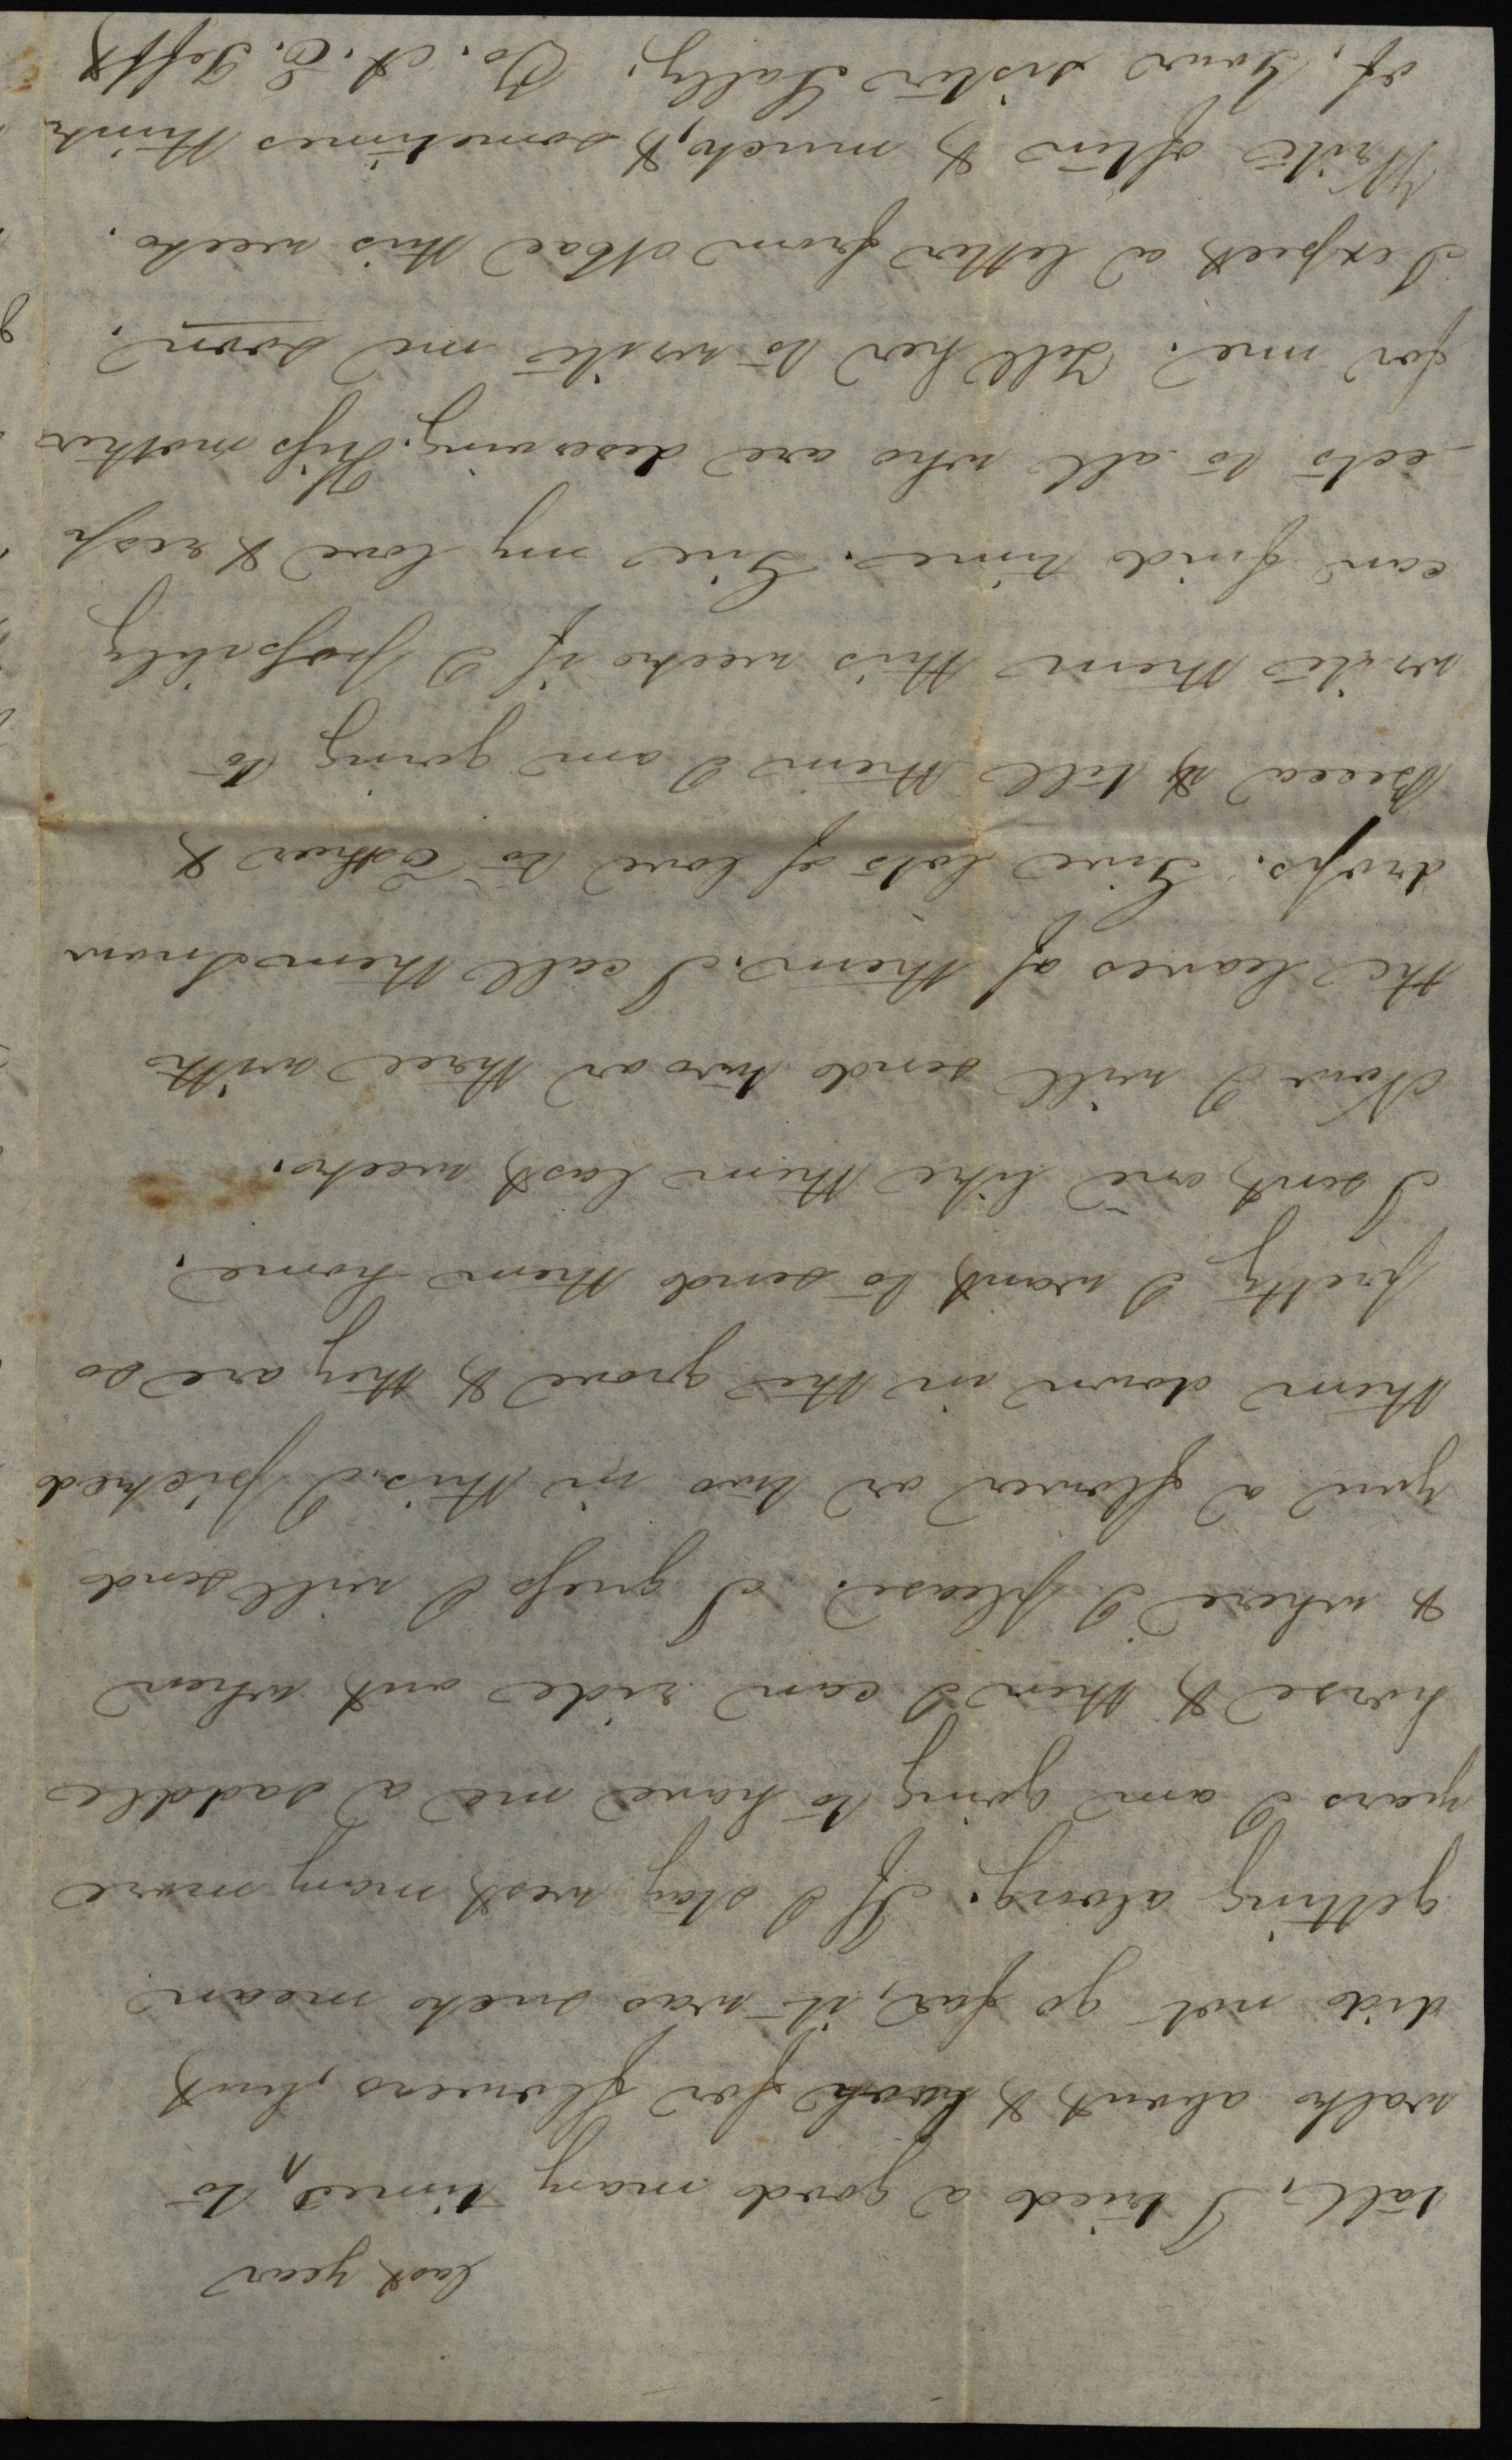 last year
tall, I tried a good many times ^ to
walk about & look for flowers, but
did not go far, it was such mean
getting along. If I stay west many more
years I am going to have me a saddle
horse & then I can ride out when
& where I please. I guess I will send
you a flower or two in this. I picked
them down in the grove & they are so
pretty I want to send them home.
I sent one like them last week.
Now I will send two or three with
the leaves of them. I call them snow
drops. Give lots of love to Esther &
Becca & tell them I am going to
write them this week if I possibly
can find time. Give my love & resp
-ects to all who are deserving. Kiss mother
for me. Tell her to write me soon.
I expect a letter from this week.
Write often & much, & sometimes think
of, Your sister Sally. To. A. E. Tefft